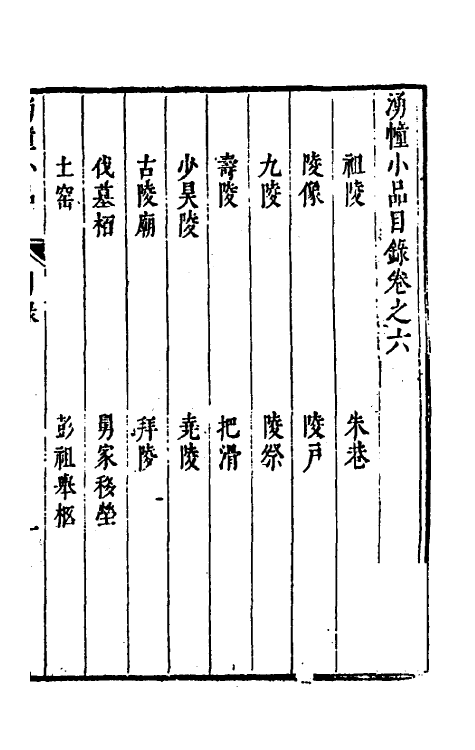 湧幢小品目錄卷之六
祖陵 朱巷
陵像 陵戶
九陵 陵祭
壽陵 把滑
少昊陵 堯陵
古陵廟 拜陵
伐墓栢 舅家移塋
土窑 彭祖舉柩
湧幢小品 目錄 一